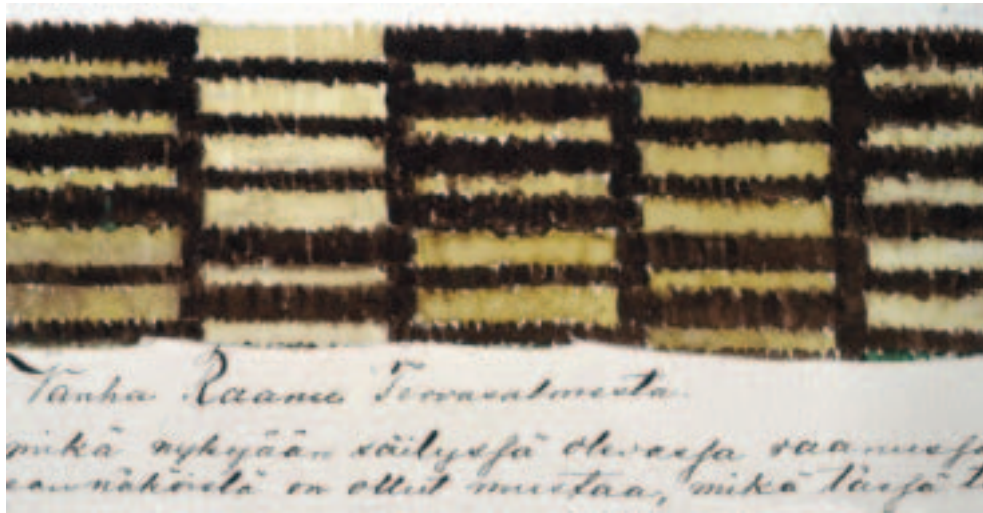 Vanha Raanu Tervasalmesta.
mikä nykyään säilyssä olevassa raanussa
on ollut mustaa, mikä tässä